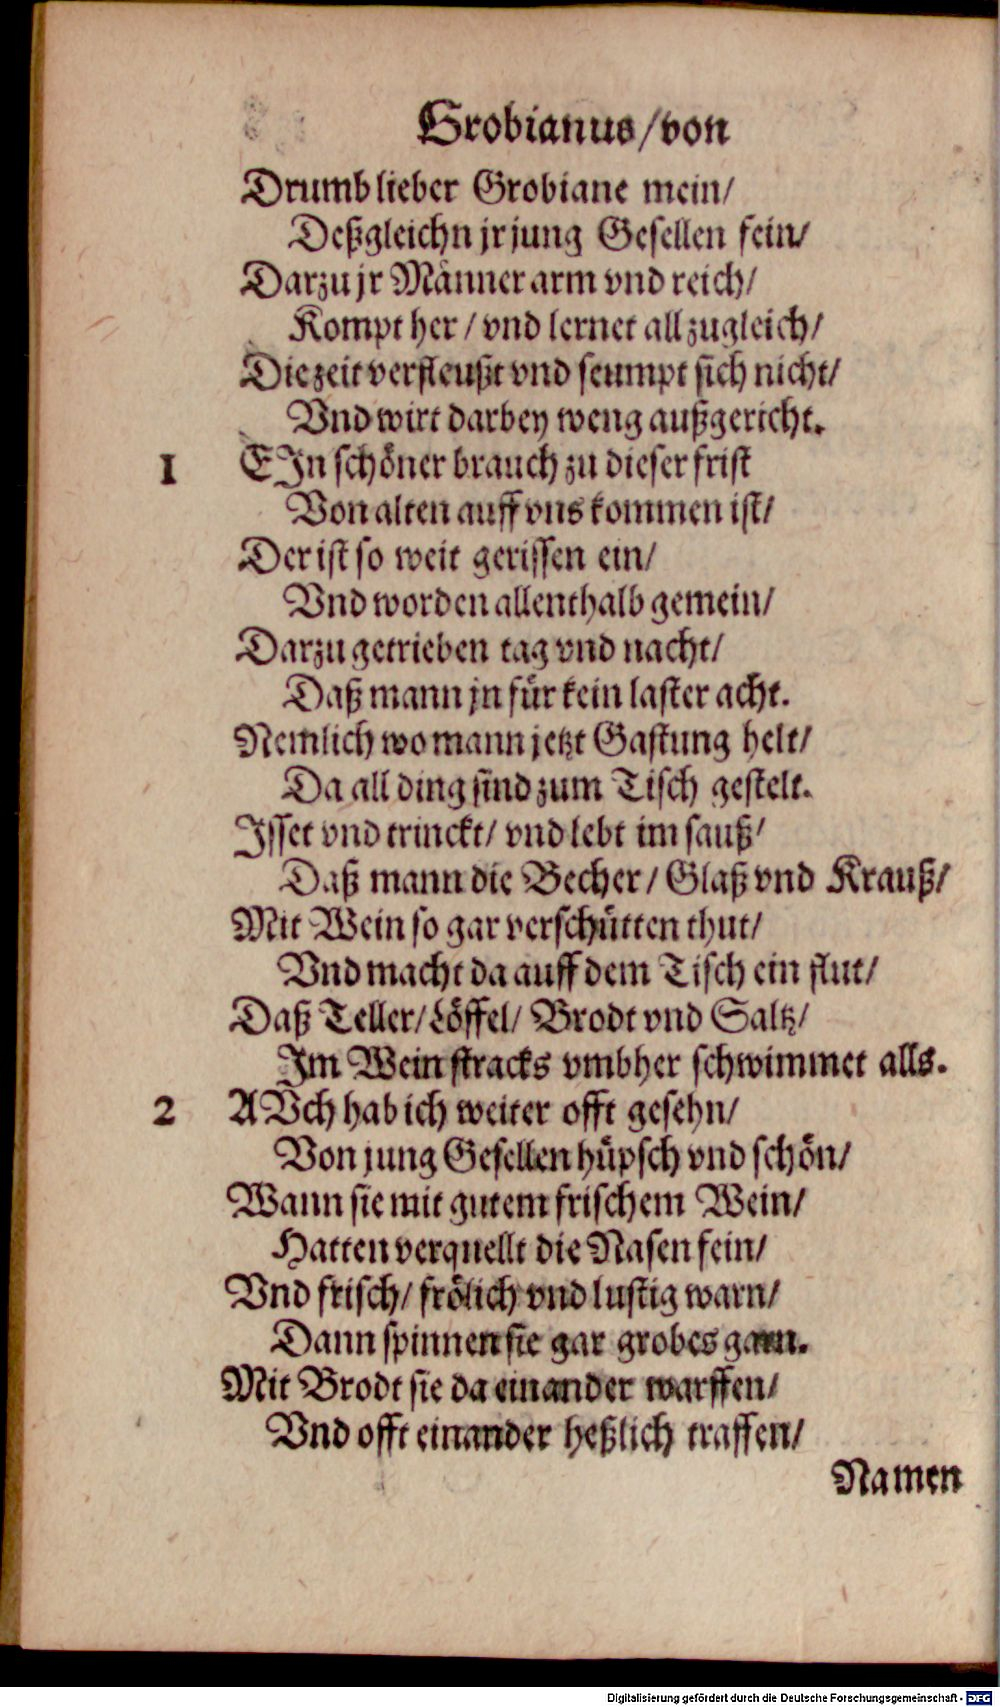 Grobianus/von
Drumb lieber Grobiane mein/
Deßgleichn jr jung Gesellen fein/
Darzu jr Männer arm vnd reich/
Kompt her / vnd lernet all zugleich/
Die zeit verfleußt vnd seumpt sich nicht/
Vnd wirt darbey weng außgericht.
1 EJn schöner brauch zu dieser frist
Von alten auff vns kommen ist/
Der ist so weit gerissen ein/
Vnd worden allenthalb gemein/
Darzu getrieben tag vnd nacht/
Daß mann jn für kein laster acht.
Nemlich wo mann jetzt Gastung helt/
Da all ding sind zum Tisch gestelt.
Jsset vnd trinckt/ vnd lebt im sauß/
Daß mann die Becher/ Glaß vnd Krauß/
Mit Wein so gar verschütten thut/
Vnd macht da auff dem Tisch ein flut/
Daß Teller/ Löffel/ Brodt vnd Saltz/
Jm Wein stracks vmbher schwimmet alls.
2 AVch hab ich weiter offt gesehn/
Von jung Gesellen hüpsch vnd schön/
Wann sie mit gutem frischem Wein/
Hatten verquellt die Nasen fein/
Vnd frisch/ frölich vnd lustig warn/
Dann spinnen sie gar grobes garn.
Mit Brodt sie da einander warffen/
Vnd offt einander heßlich traffen/
Namen
Digitalisierung gefördert durch die Deutsche Forschungsgemeinschaft - DFG